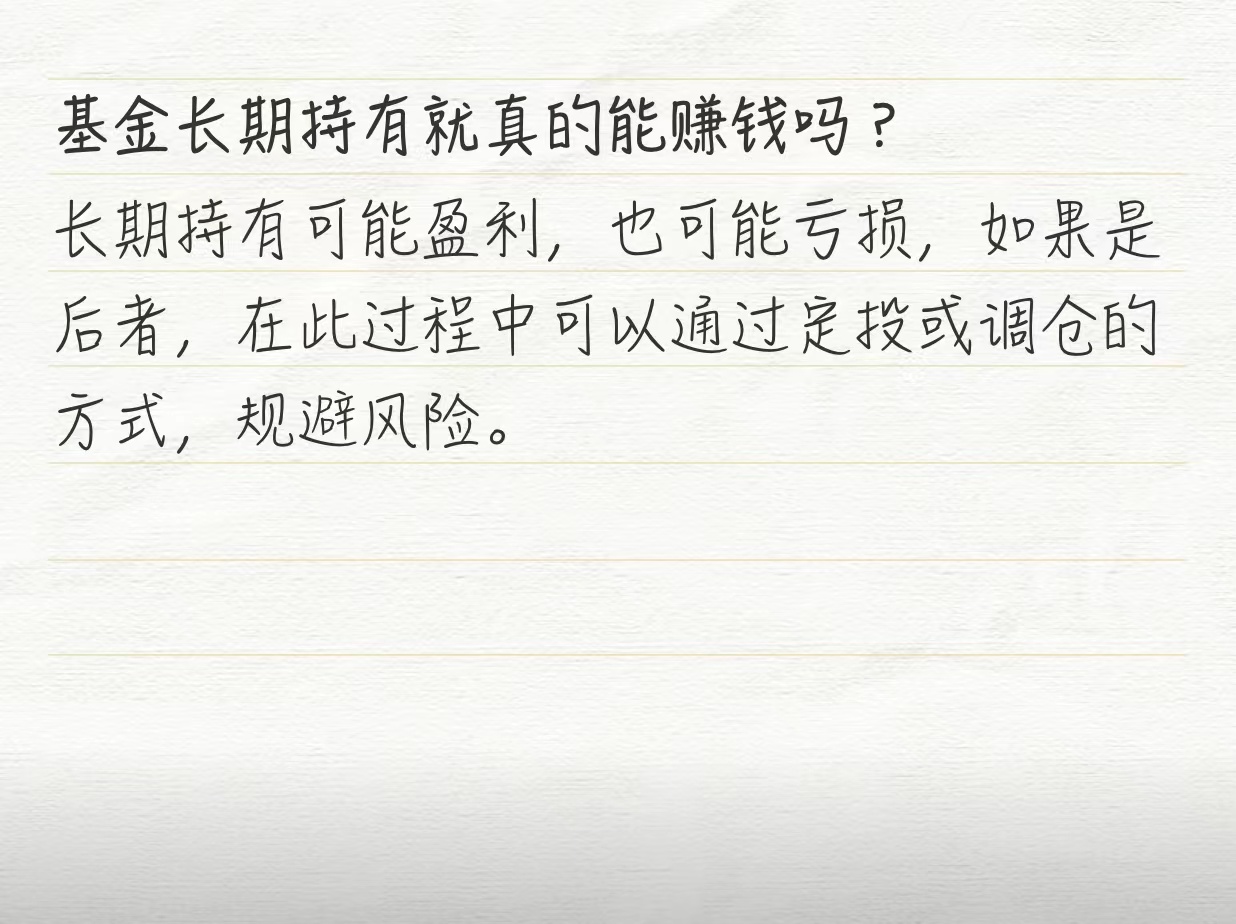 基金长期持有就真的能赚钱吗？
长期持有可能盈利，也可能亏损，如果是
后者，在此过程中可以通过定投或调仓的
方式，规避风险。